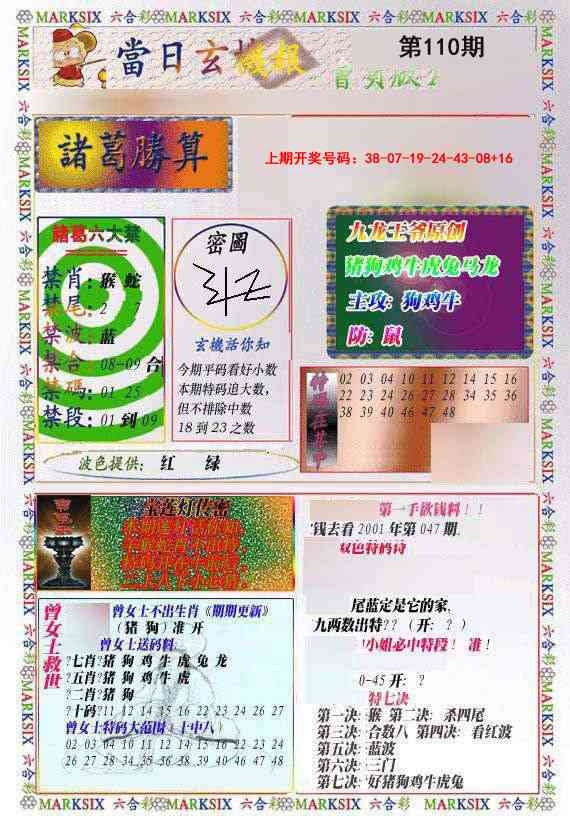 MARKSIX 六合彩 MARKSIX 六合彩 MARKSIX 六合彩 MARKSIX 六合彩 MARKSIX
當日玄機報
第110期
諸葛勝算
上期开奖号码：38-07-19-24-43-08+16
諸葛六大禁
禁肖：猴 蛇
禁尾：2 7
禁波：蓝
禁合：08-09 合
禁碼：01 25
禁段：01 到 09
密圖
玄機話你知
今期平码看好小数
本期特码追大数，
但不排除中数
18 到 23 之数
九龙王爷原创
猪狗鸡牛虎兔马龙
主攻: 狗鸡牛
防: 鼠
02 03 04 10 11 12 14 15 16
22 23 24 26 27 28 34 35 36
38 39 40 46 47 48
波色提供: 红 绿
宝莲灯传密
曾女士救世
曾女士不出生肖《期期更新》
（猪 狗）准 开
曾女士送码料
?七肖?猪 狗 鸡 牛 虎 兔 龙
?五肖?猪 狗 鸡 牛 虎
?二肖?猪 狗
?十码?11 12 14 15 16 22 23 24 26 27
曾女士特码大范围（十中八）
02 03 04 10 11 12 14 15 16 22 23 24
26 27 28 34 35 36 38 39 40 46 47 48
第一手欲钱料！！
钱去看 2001 年第 047 期.
双色特码诗
尾蓝定是它的家,
九两数出特??（开: ? ）
小姐必中特段！ 准！
0-45 开: ?
特七决
第一决: 猴 第二决: 杀四尾
第三决: 合数八 第四决: 看红波
第五决: 蓝波
第六决: 三门
第七决: 好猪狗鸡牛虎兔
MARKSIX 六合彩 MARKSIX 六合彩 MARKSIX 六合彩 MARKSIX 六合彩 MARKSIX